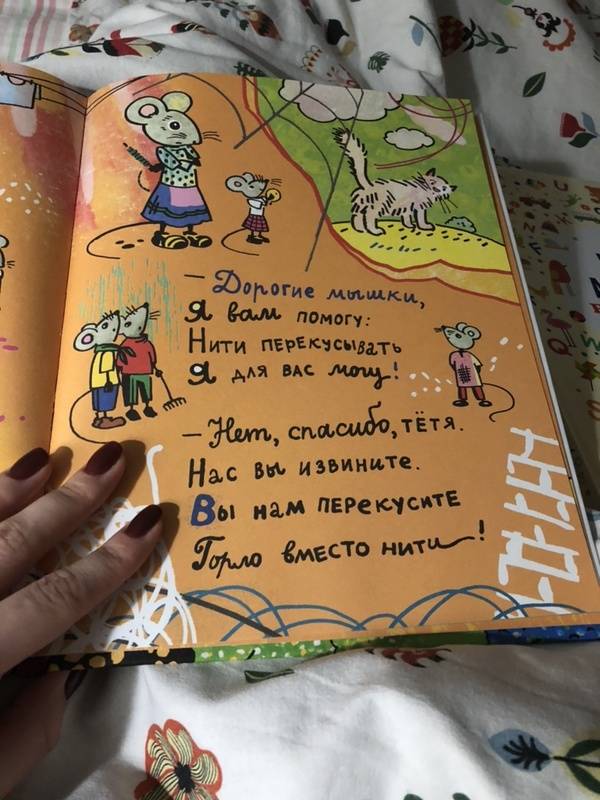 — Дорогие мышки,
Я вам помогу:
Нити перекусывать
Я для вас могу!
— Нет, спасибо, тётя.
Нас вы извините.
Вы нам перекусите
Горло вместо нити!